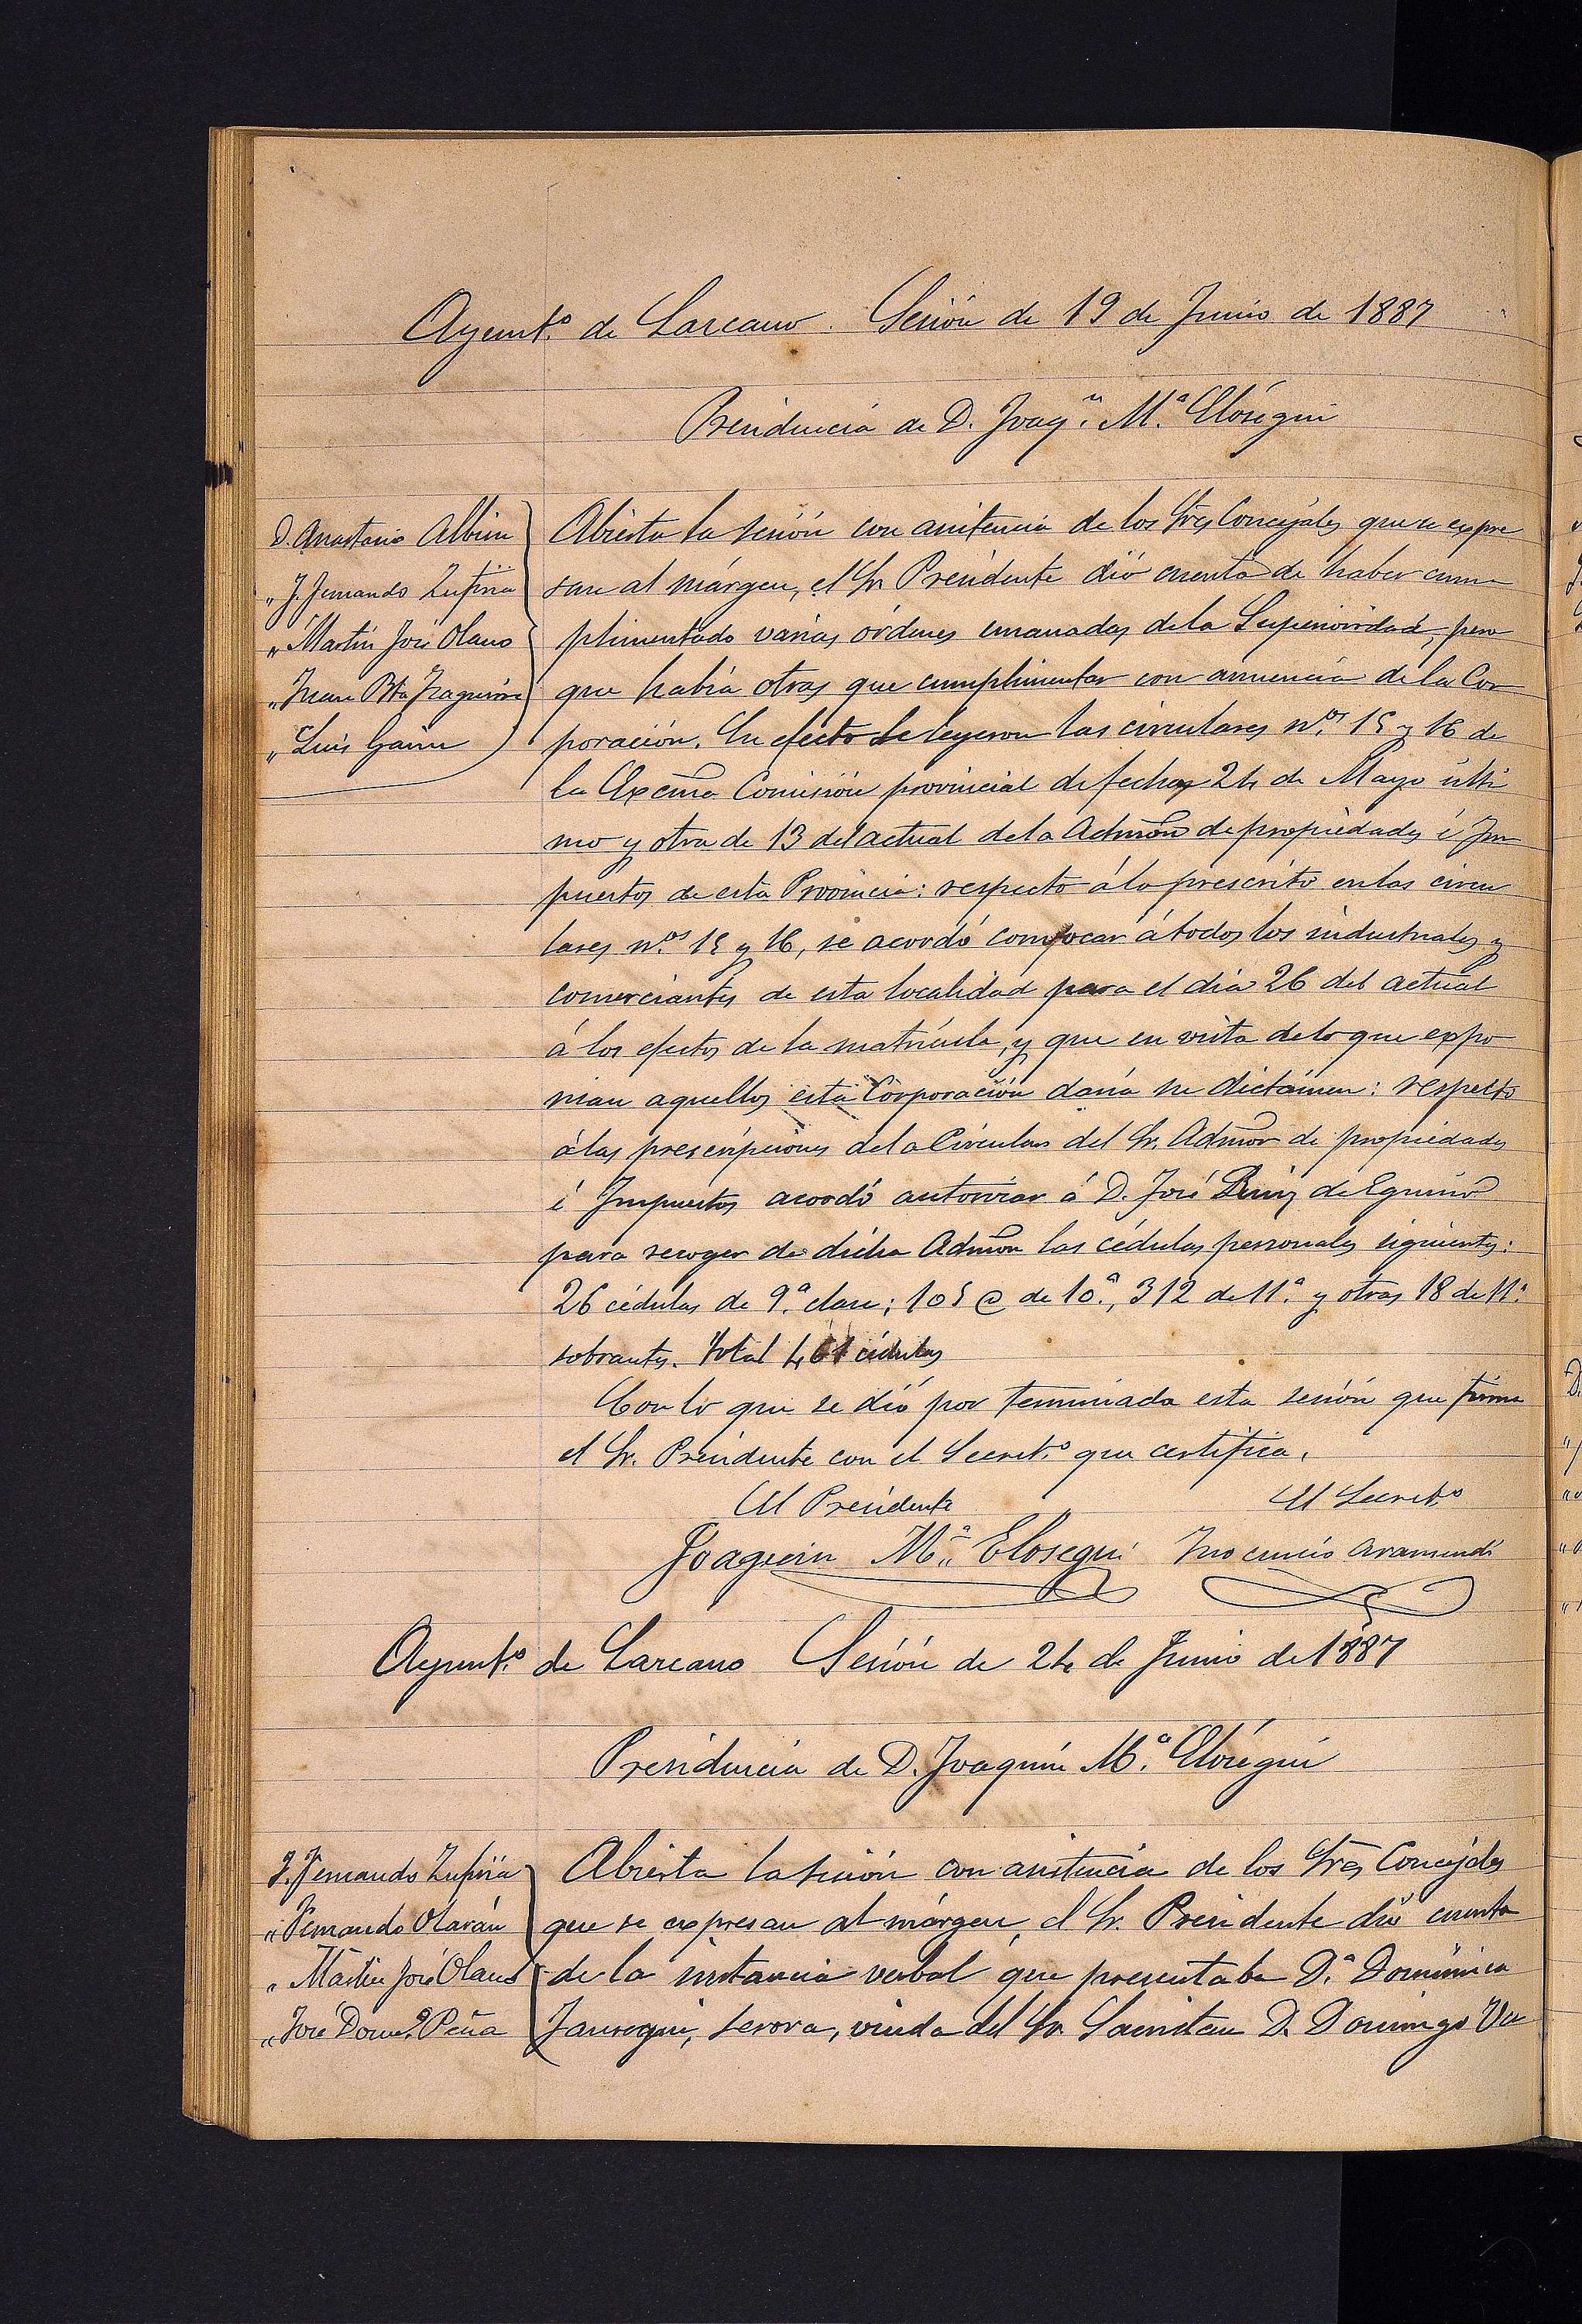 Ayunt.º de Lazcano. Sesión de 19 de Junio de 1887
Presidencia de D. Joaq.n M.ª Elósegui
D. Anastasio Albisu
" J. Fernando Zufiria
" Martin José Olano
" Juan Bta Izaguirre
" Luis Garin
Abierta la sesión con asistencia de los Sres Concejales que se expre
san al márgen, el Sr Presidente dió cuenta de haber cum
plimentado varias órdenes emanadas de la Superioridad, pero
que habia otras que cumplimentar con anuencia de la Cor
poración. En efecto se leyeron las circulares n.os 15 y 16 de
la Excma Comisión provincial de fechas 24 de Mayo últi
mo y otra de 13 del actual de la Admón de propiedades é Im
puestos de esta Provincia: respecto á lo prescrito en las circu
lares n.os 15 y 16, se acordó convocar á todos los industriales y
comerciantes de esta localidad para el dia 26 del actual
á los efectos de la matrícula, y que en vista de lo que expo
nian aquellos esta Corporación daria su dictámen: respecto
á las prescripciones de la Circular del Sr. Admor de propiedades
é Impuestos acordó autorizar á D. José Ruiz de Eguino
para recoger de dicha Admon las cédulas personales siguientes:
26 cédulas de 9.ª clase; 105 @ de 10.ª, 312 de 11.ª y otras 18 de 11.ª
sobrantes. Total 461 cédulas
Con lo que se dió por terminada esta sesión que firma
el Sr. Presidente con el Secret.º que certifica.
El Presidente El Secret.º
Joaquin M.ª Elosegui Inocencio Aramendi
Ayunt.º de Lazcano Sesión de 24 de Junio de 1887
Presidencia de D. Joaquin M.ª Elósegui
J. Fernando Zufiria
" Fernando Olarán
" Martin José Olano
" José Dom.º Peña
Abierta la sesión con asistencia de los Sres Concejales
que se expresan al márgen, el Sr. Presidente dió cuenta
de la instancia verbal que presentaba D.ª Dominica
Jauregui, serora, viuda del Sr. Sacristan D. Domingo